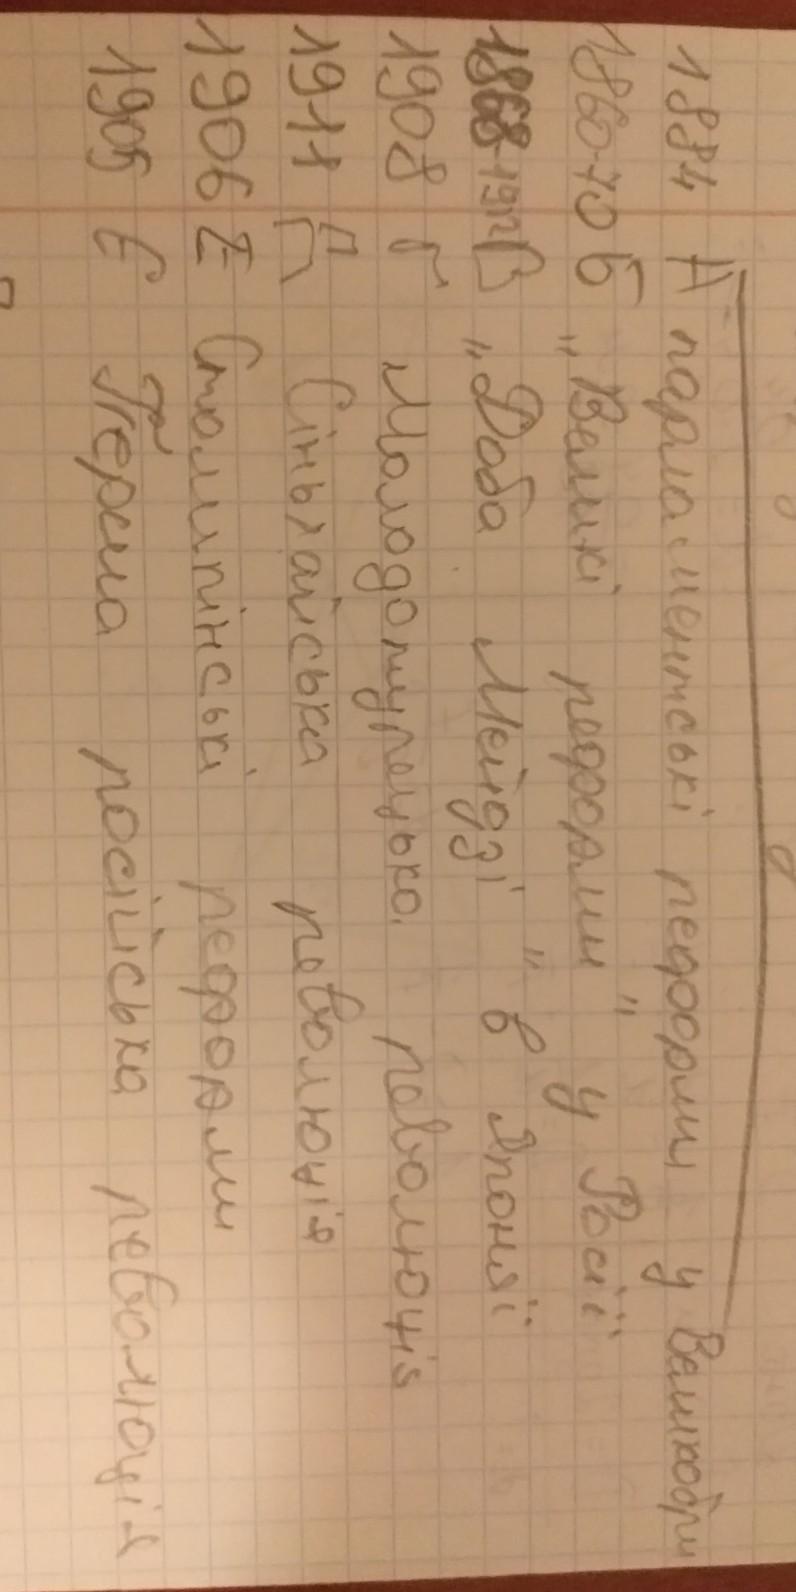 1884 А парламентські реформи у Великобри
1860-70 Б "Великі реформи" у Росії
1868-1912 В "Доба Мейдзі" в Японії
1908 Г Молодотурецька революція
1911 Д Сіньхайська революція
1906 Е Столипінські реформи
1905 Є Перша російська революція